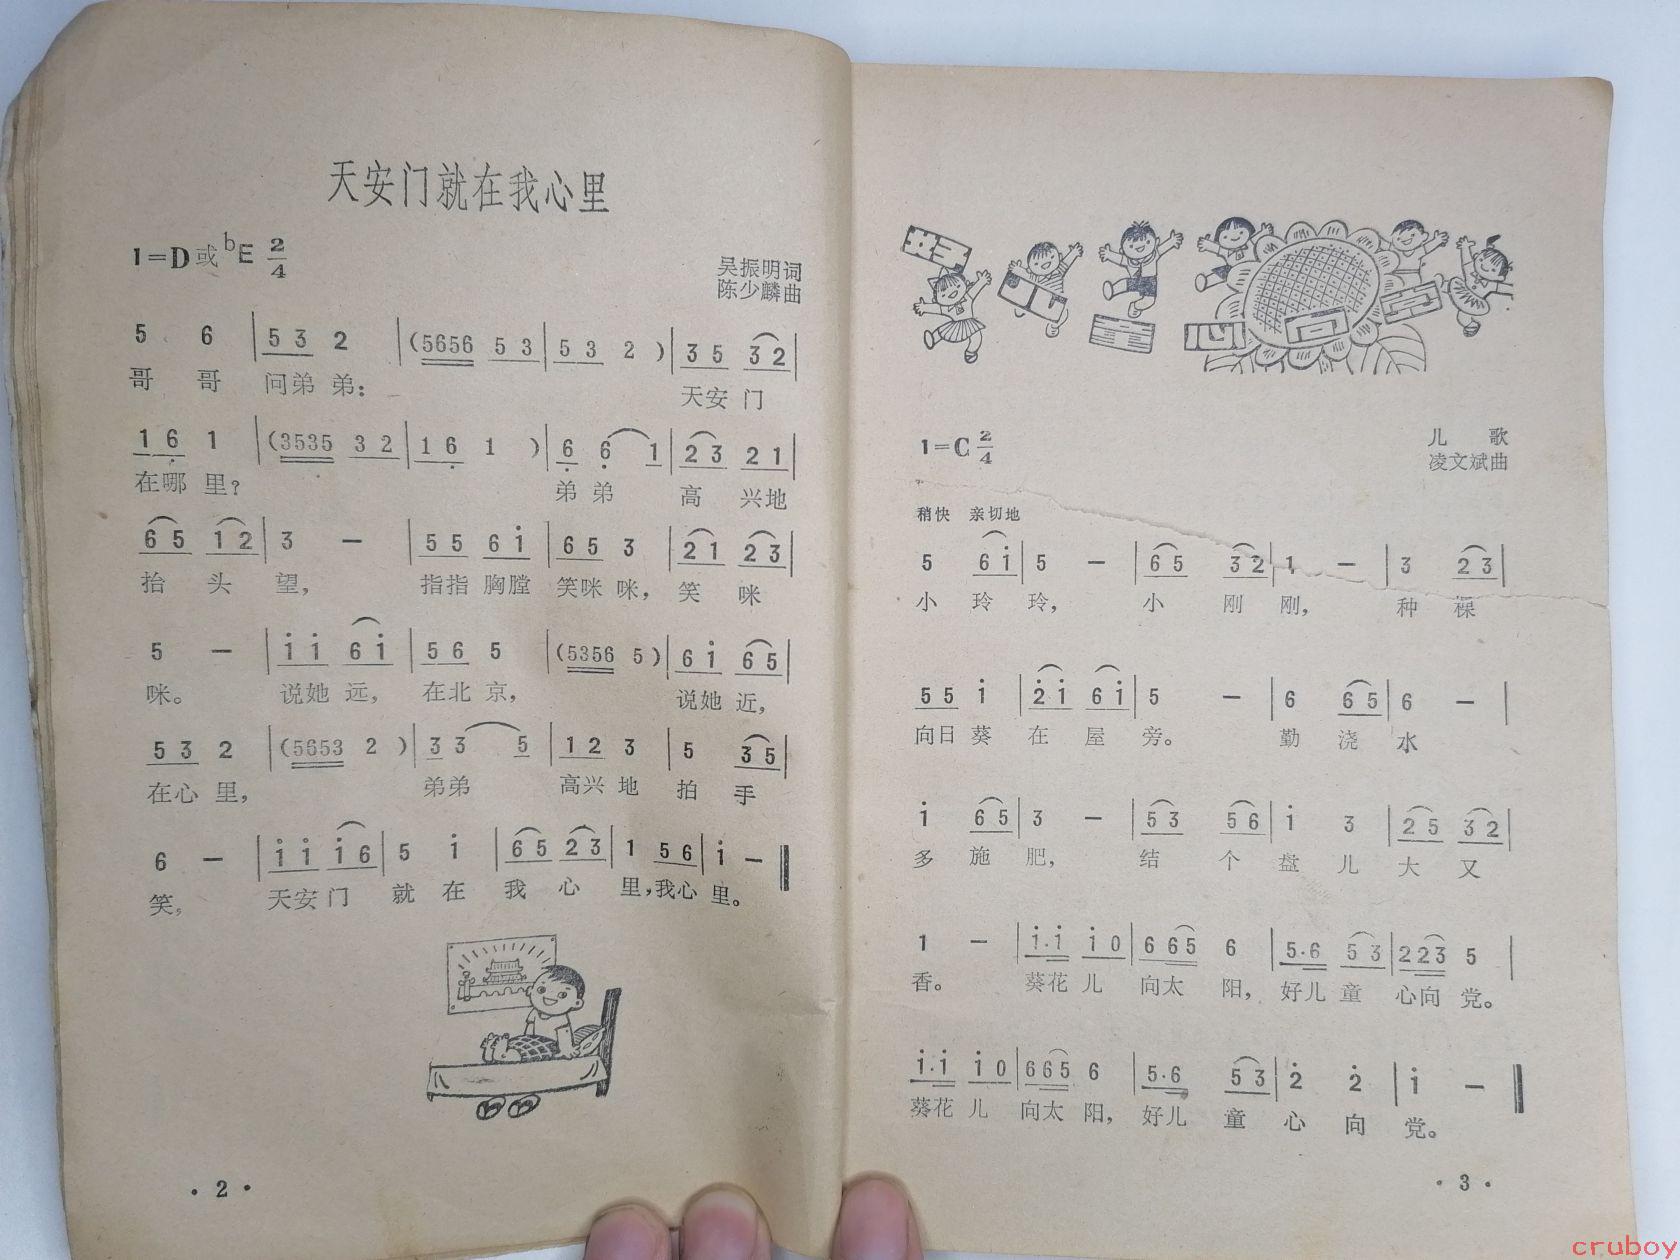 天安门就在我心里
1=D或bE 2/4
吴振明词
陈少麟曲
5 6 | 5 3 2 | (5656 5 3 | 5 3 2 ) | 3 5 3 2 |
哥 哥 问弟 弟： 天安 门
1 6̣ 1 | (3535 3 2 | 1 6̣ 1 ) | 6̣ 6̣ 1 | 2 3 2 1 |
在哪 里？ 弟 弟 高 兴地
6 5 1 2 | 3 — | 5 5 6 i | 6 5 3 | 2 1 2 3 |
抬 头 望， 指指 胸膛 笑咪 咪，笑 咪
5 — | i i 6 i | 5 6 5 | (5356 5 ) | 6 i 6 5 |
咪。 说她 远， 在北 京， 说她 近，
5 3 2 | (5653 2 ) | 3 3 5 | 1 2 3 | 5 3 5 |
在心 里， 弟弟 高兴 地 拍 手
6 — | i i i 6 | 5 i | 6 5 2 3 | 1 5 6 | i — ‖
笑， 天安 门 就 在 我 心 里，我心 里。
· 2 ·
1=C 2/4
儿 歌
凌文斌曲
稍快 亲切地
5 6 i | 5 — | 6 5 3 2 | 1 — | 3 2 3 |
小 玲 玲， 小 刚 刚， 种 棵
5 5 i | 2̇ i 6 i | 5 — | 6 6 5 | 6 — |
向日 葵 在 屋 旁。 勤 浇 水
i 6 5 | 3 — | 5 3 5 6 | i 3 | 2 5 3 2 |
多 施 肥， 结 个 盘 儿 大 又
1 — | i·i i 0 | 6 6 5 6 | 5·6 5 3 | 2 2 3 5 |
香。 葵花 儿 向太 阳，好儿 童 心向 党。
i·i i 0 | 6 6 5 6 | 5·6 5 3 | 2̇ 2̇ | i — ‖
葵花 儿 向太 阳，好儿 童 心 向 党。
· 3 ·
cruboy